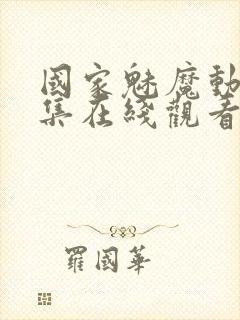 國家魅魔動
集在綫觀看
羅國華